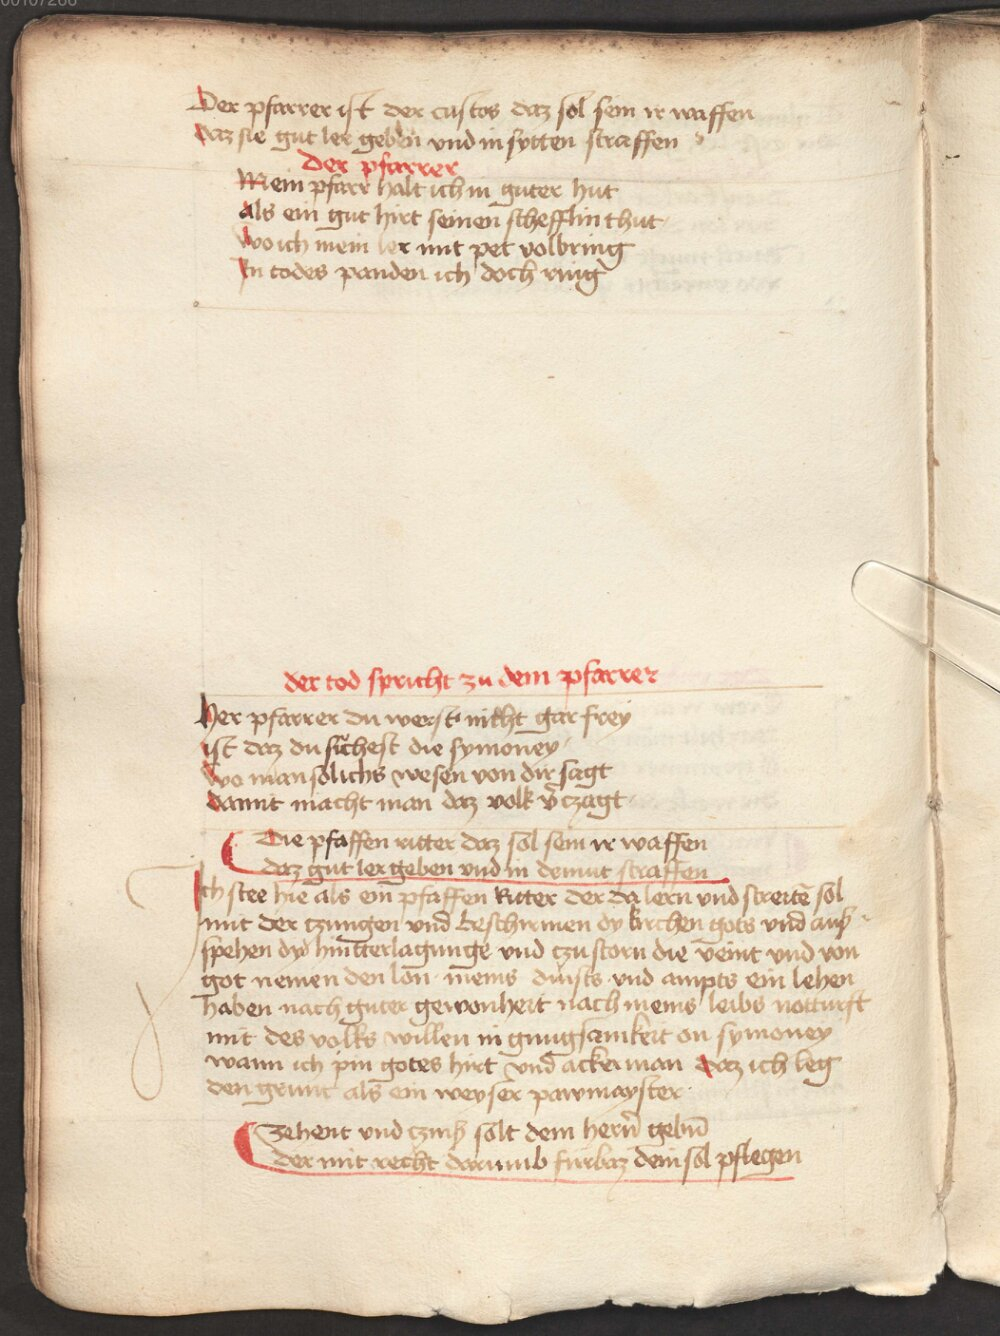 00107266
Der pfarrer ist der custos daz sol sein ir waffen
daz sie gut ler geben vnd in sytten straffen
der pfarrer
Mein pfarr halt ich in guter hut
Als ein gut hirt seinen schefflin thut
wo ich mein ler mit pet volbring
In todes panden ich doch ring
der tod spricht zu dem pfarrer
Her pfarrer du werst nicht gar frey
ist daz du suchest die symoney
wo man solichs wesen von dir sagt
damit macht man daz volk v̄czagt
Die pfaffen ritter daz sol sein ir waffen
daz gut ler geben vnd in demut straffen
Ich stee hie als ein pfaffen Ritter der da lern vnd streite sol
mit der czungen vnd beschirmen dy kirchen gots vnd auß
spehen dy hintterlagunge vnd czustorn die veint vnd von
got nemen den lon meins dinsts vnd ampts ein lehen
haben nach guter gewonheit nach meins leibs notturft
mit des volks willen in gnugsamkeit on symoney
wann ich pin gotes hirt vnd ackerman daz ich leg
den grunt als ein weyser pawmayster
Zehent vnd czinß solt dem hern̄ gebn̄
der mit recht darumb furbaz dein sol pflegen